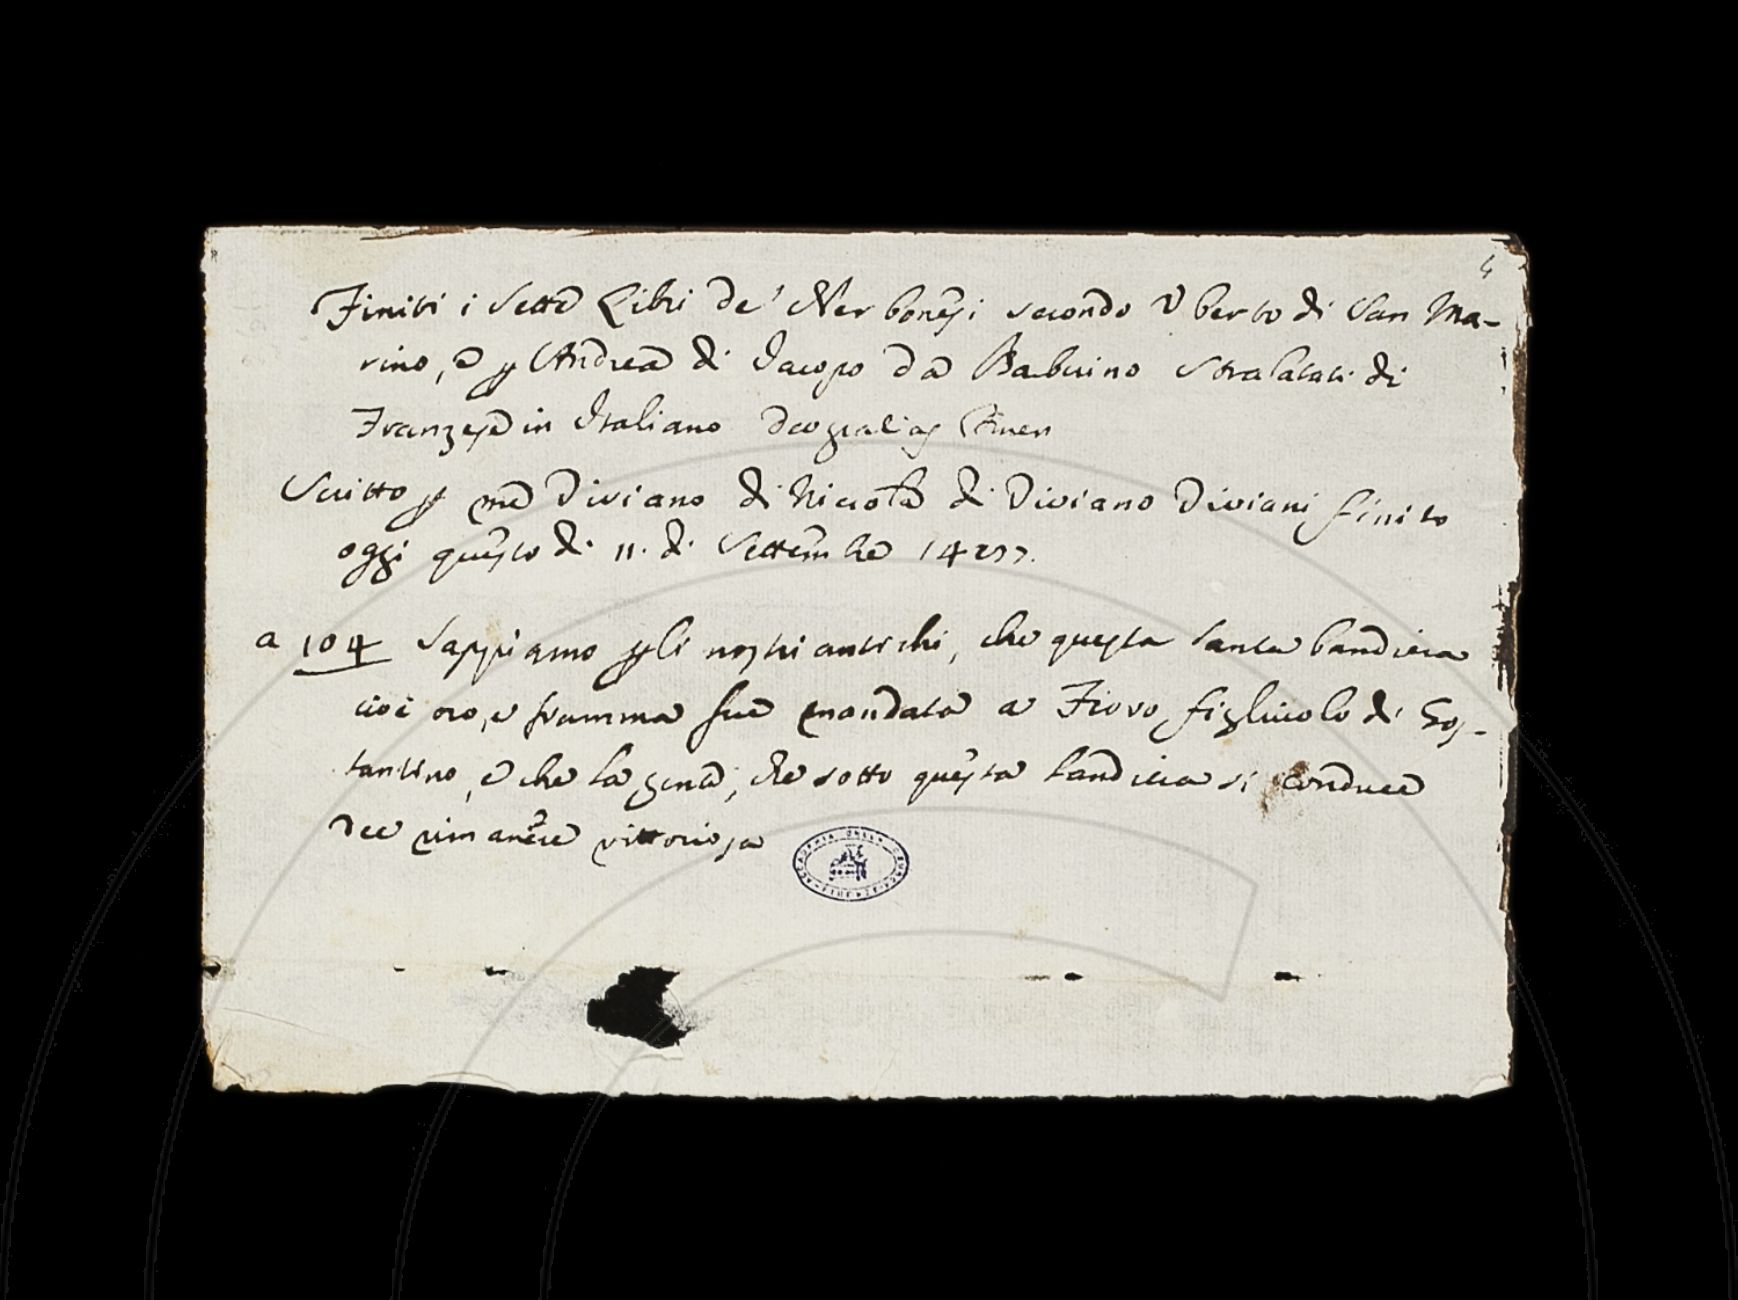 4
Finiti i Sette Libri de' Nerbonesi secondo Uberto di San Ma-
rino, e p Andrea di Jacopo da Barberino stralatati di
Franzese in Italiano deo gratias Amen
Scritto p me Diviano di Niccola di Diviano Diviani finito
oggi questo di 11. di Settembre
a 104 Sappiamo p li nostri antichi, che questa santa bandiera
cioè oro, e fiamma fue mandata a Fiovo figliuolo di Gos-
tantino, e che la gente, che sotto questa bandiera si conduce
dee rimanere vittoriosa
ACCADEMIA DELLA CRUSCA